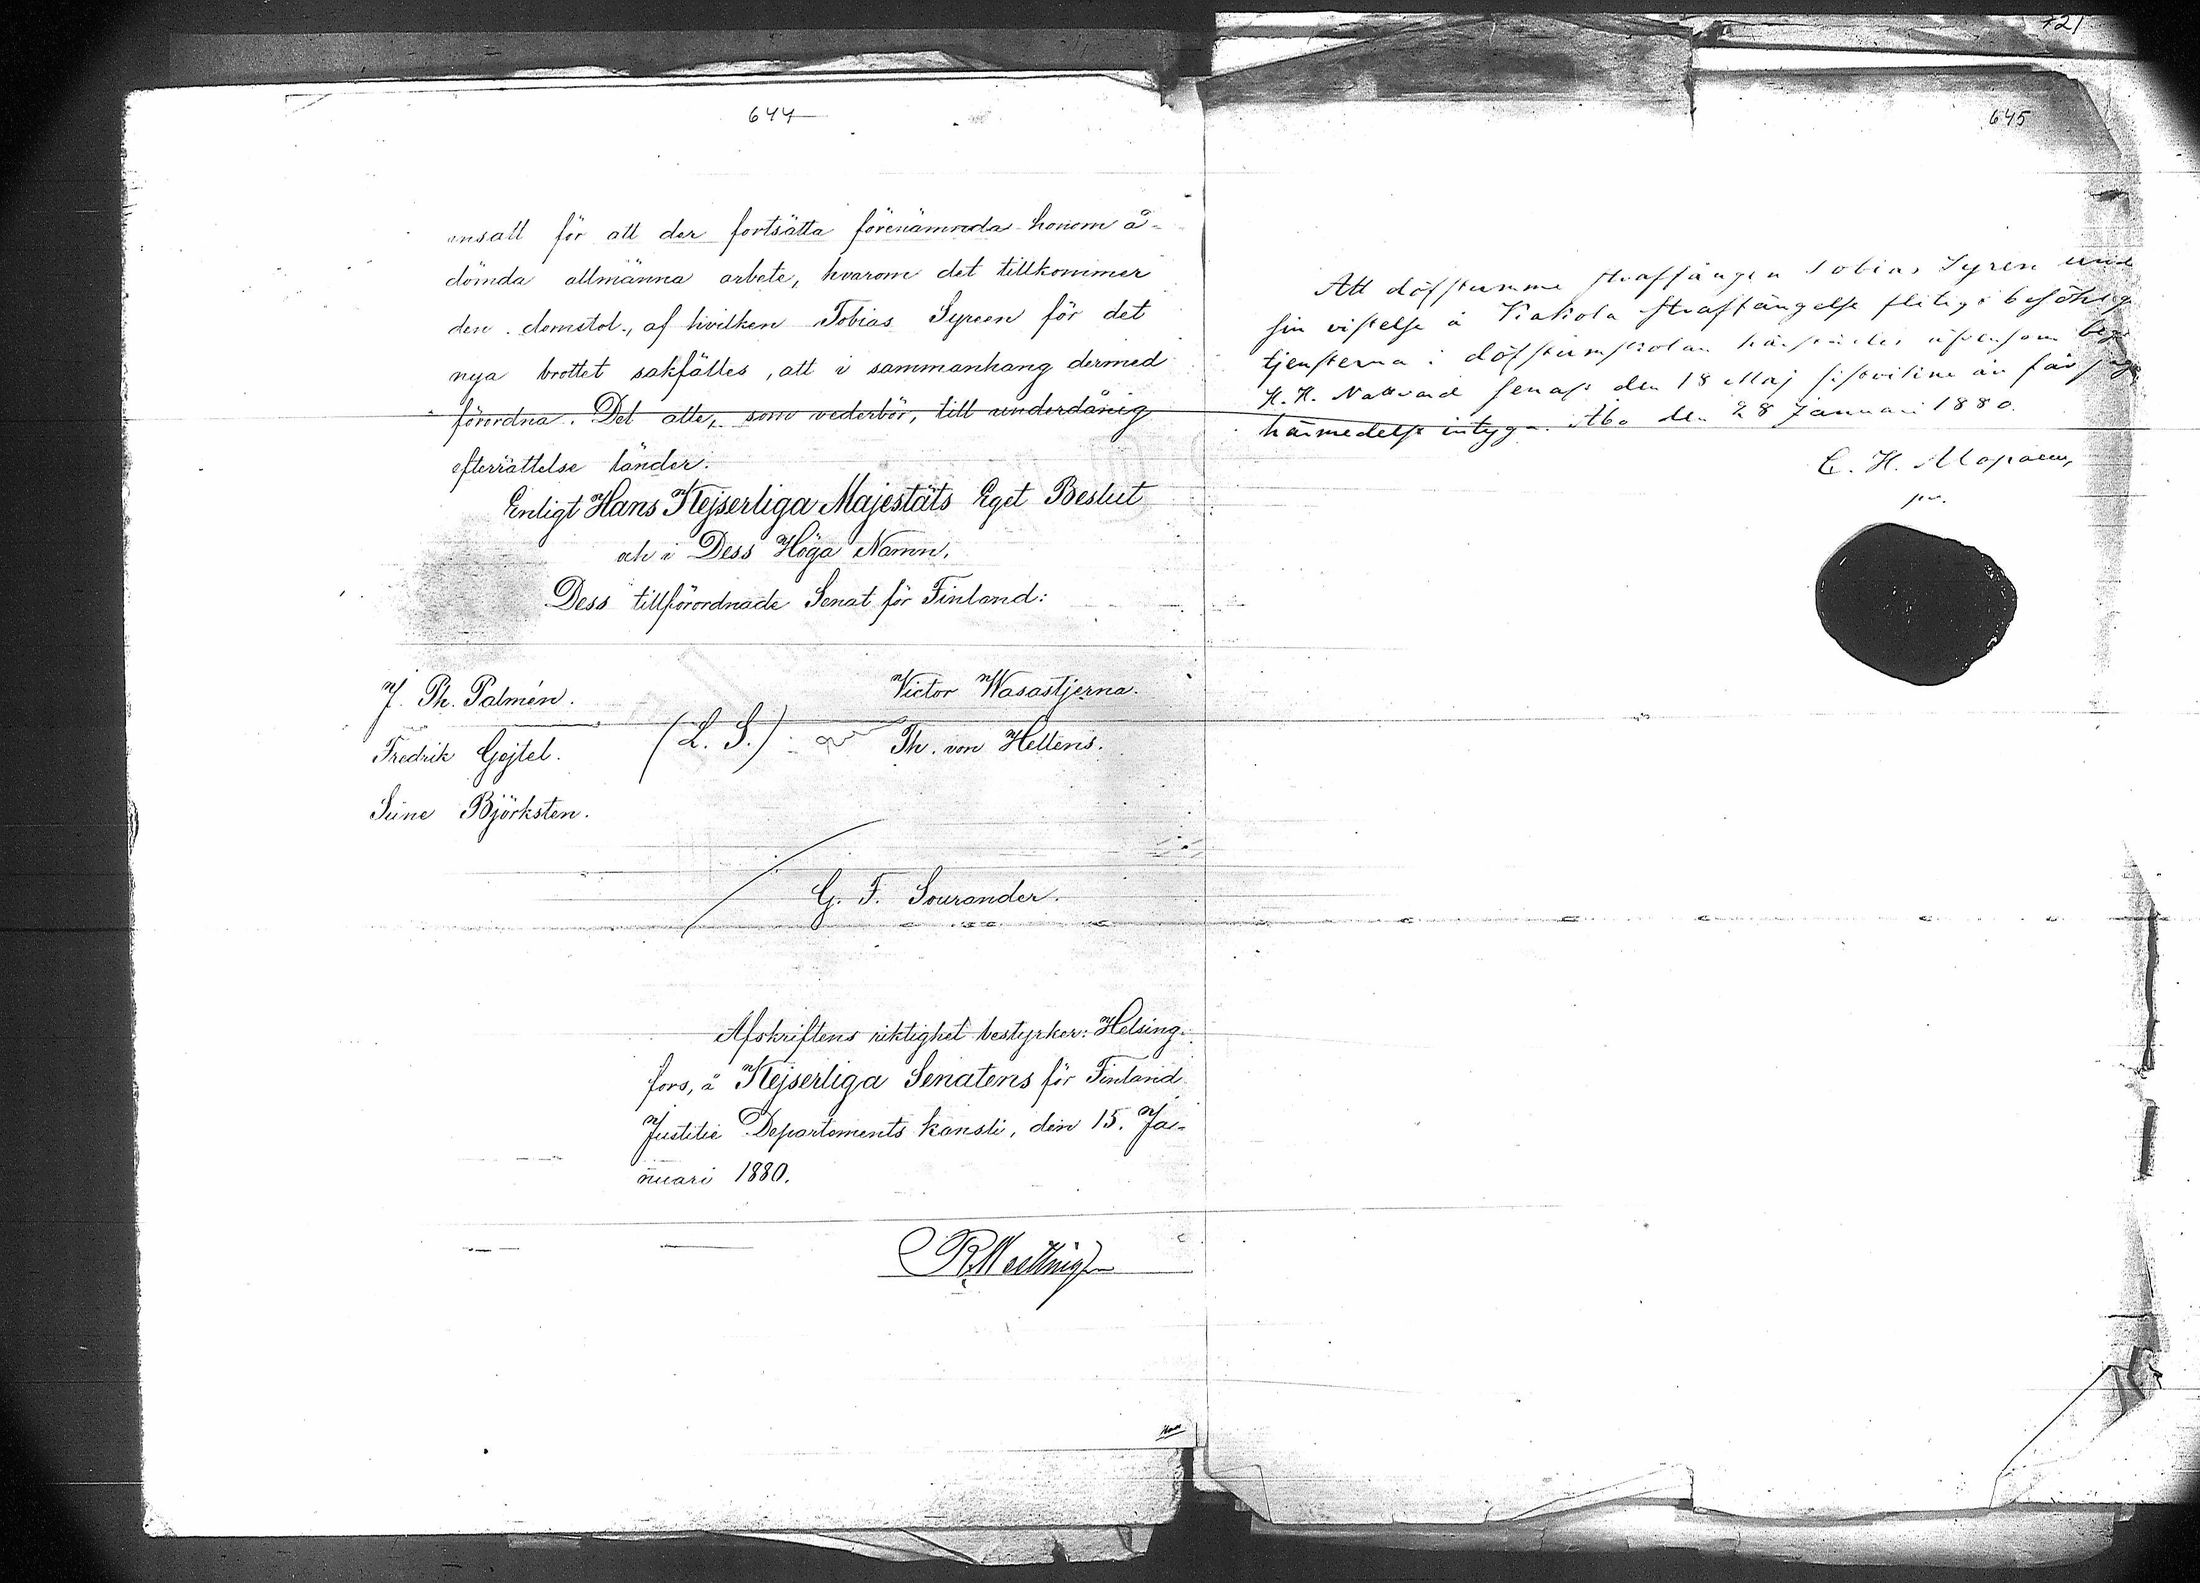 644
ansalt för att der fortsätta förenämnda honom å-
dömda allmänna arbete, hvarom det tillkommer
den domstol, af hvilken Tobias Syreen för det
nya brottet sakfälles, att i sammanhang dermed
förordna. Det alle, som vederbör, till underdånig
efterrättelse länder.
Enligt Hans Kejserliga Majestäts Eget Beslut
och i Dess Höga Namn,
Dess tillförordnade Senat för Finland:
J. Ph. Palmén. Victor Wasastjerna.
Fredrik Gejtel. (L. S.) Th. von Hellens.
Sune Björksten.
G. F. Sourander.
Afskriftens riktighet bestyrker: Helsing-
fors, å Kejserliga Senatens för Finland
Justitie Departements kansli, den 15. Ja-
nuari 1880.
721
645
Att döfstumme straffången Tobias Syren und
sin vistelse å Kakola straffängelse flitigt besökt
tjensterna i döfstumskolan härstädes äfvensom
H. H. Nattvard senast den 18 Maj får jag
härmedelst intyga. Åbo den 28 Januari 1880.